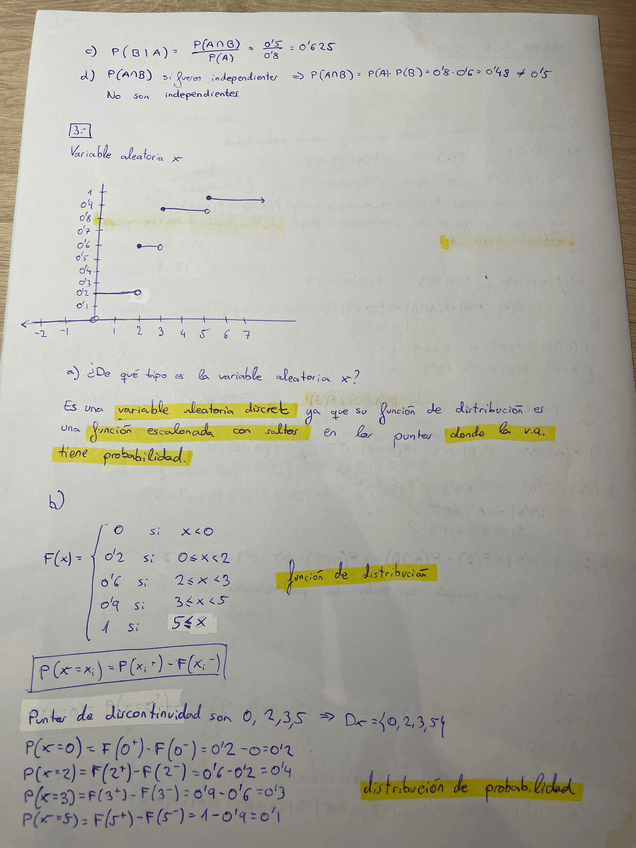 c) P(B|A) = P(A∩B)/P(A) = 0'5/0'8 = 0'625
d) P(A∩B) si fueran independientes ⇒ P(A∩B) = P(A)·P(B) = 0'8·0'6 = 0'48 ≠ 0'5
No son independientes.
3.-
Variable aleatoria x
1
0'9
0'8
0'7
0'6
0'5
0'4
0'3
0'2
0'1
-2 -1 1 2 3 4 5 6 7
a) ¿De qué tipo es la variable aleatoria x?
Es una variable aleatoria discret ya que su función de distribución es
una función escalonada con saltos en los puntos donde la v.a.
tiene probabilidad.
b)
F(x) = {
0 si x<0
0'2 si 0≤x<2
0'6 si 2≤x<3
0'9 si 3≤x<5
1 si 5≤x
función de distribución
P(x=xᵢ) = P(xᵢ⁺) - F(xᵢ⁻)
Puntos de discontinuidad son 0, 2, 3, 5 ⇒ Dx = {0, 2, 3, 5}
P(x=0) = F(0⁺) - F(0⁻) = 0'2 - 0 = 0'2
P(x=2) = F(2⁺) - F(2⁻) = 0'6 - 0'2 = 0'4
P(x=3) = F(3⁺) - F(3⁻) = 0'9 - 0'6 = 0'3
distribución de probabilidad
P(x=5) = F(5⁺) - F(5⁻) = 1 - 0'9 = 0'1